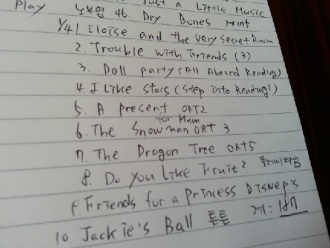 Just a Little Music
Play 46. Dry Bones
1/41. Eloise and the Very Secret Room
2. Trouble with Friends (3)
3. Doll party (All Aboard Reading)
4. I Like Stars (Step into Reading 1)
5. A Present for Mum ORT2
6. The Snowman ORT 3
7. The Dragon Tree ORT5
8. Do You Like Fruit?
9. Friends for a Princess Disney's
10. Jackie's Ball 튼튼